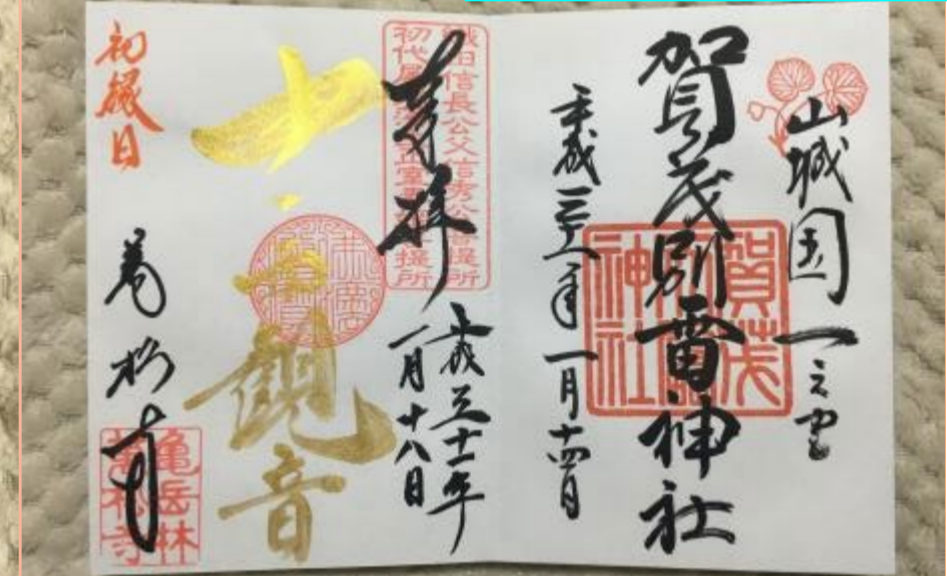 山城国一之宮
賀茂別雷神社
賀茂
神社
平成三十一年一月十四日
織田信長公父信秀公菩提所
奉拝
平成三十一年
一月十八日
十一面観音
初縁日
萬松寺
亀岳林
萬松寺